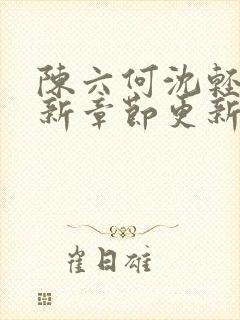 陳六何沈輕
新章節更新
雀日雄